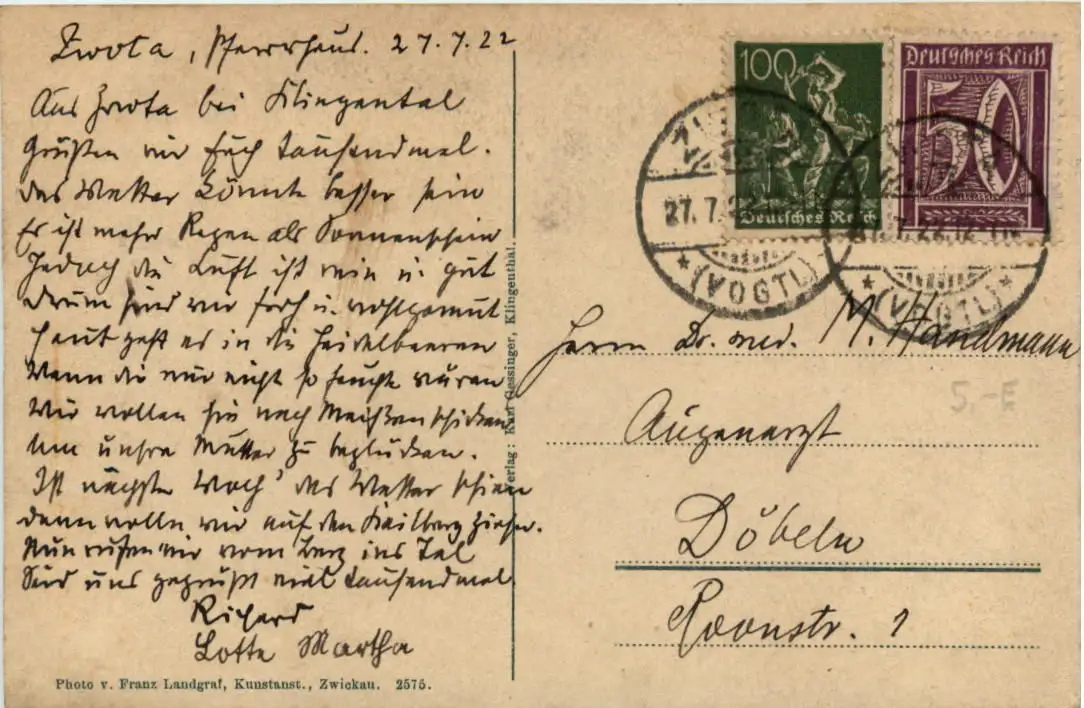 Zwota, Pfarrhaus. 27.7.22
Aus Zwota bei Klingental
Grüßen wir Euch tausendmal.
Das Wetter könnte besser sein
Es ist mehr Regen als Sonnenschein
Jedoch die Luft ist rein u. gut
Drum sind wir froh u. wohlgemut
Heut geht es in die Heidelbeeren
Wenn die nur nicht so feucht wären
Wir wollen sie nach Meißen schicken
Um unsre Mutter zu beglücken.
Ist nächste Woch' das Wetter schön
dann wolln wir auf den Keilberg ziehn.
Nun rufen wir vom Berg ins Tal
Seid uns gegrüßt viel tausendmal.
Richard
Lotte Martha
Photo v. Franz Landgraf, Kunstanst., Zwickau. 2575.
Verlag: Karl Gessinger, Klingenthal.
100
Deutsches Reich
Deutsches Reich
50
27. 7.
(VOGTL)
7. 22. 12-1N
(VOGTL)
Herrn Dr. med. M. Handmann
5,-E
Augenarzt
Döbeln
Roonstr. 1